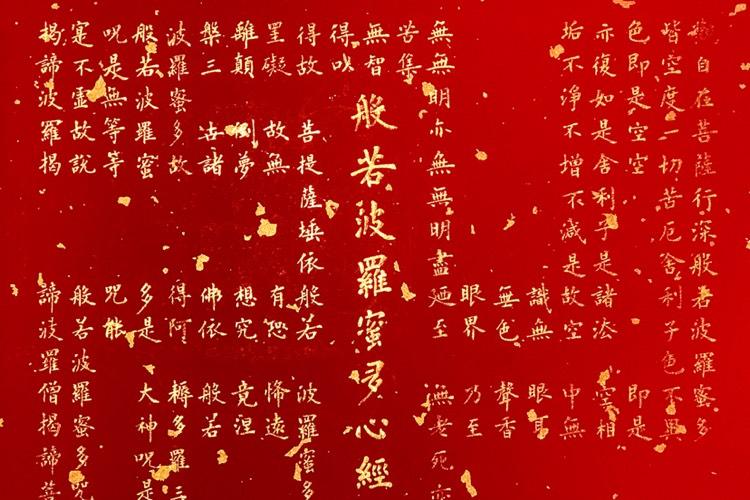 觀自在菩薩行深般若波羅蜜多
皆空度一切苦厄舍利子色不異
色即是空空 即是
亦復如是舍利子是諸法 空相
垢不淨不增不減是故空 中無
識無 眼耳
無色 聲香
眼界 乃至
無無明亦無無明盡廼至 無老死亦
苦集
無智
般若波羅蜜多心經
得以
得故 菩提薩埵依般若 波羅蜜多
罣礙 故無 有恐 怖遠
離顛 倒夢 想究 竟涅
槃三 世諸 佛依 般若
波羅蜜多故 得阿 耨多羅三
般若波羅蜜 多是 大神咒是
咒是無等等 咒能
寔不虛故說 般若波羅蜜多咒
揭諦波羅揭 諦波羅僧揭諦菩